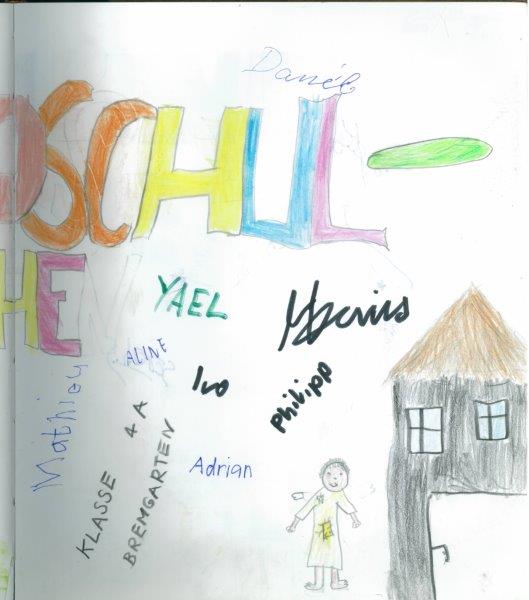 Daniel
OSCHUL-
HEN
YAEL
ALINE
Ivo
Philipp
Mathieu
KLASSE 4A
BREMGARTEN
Adrian